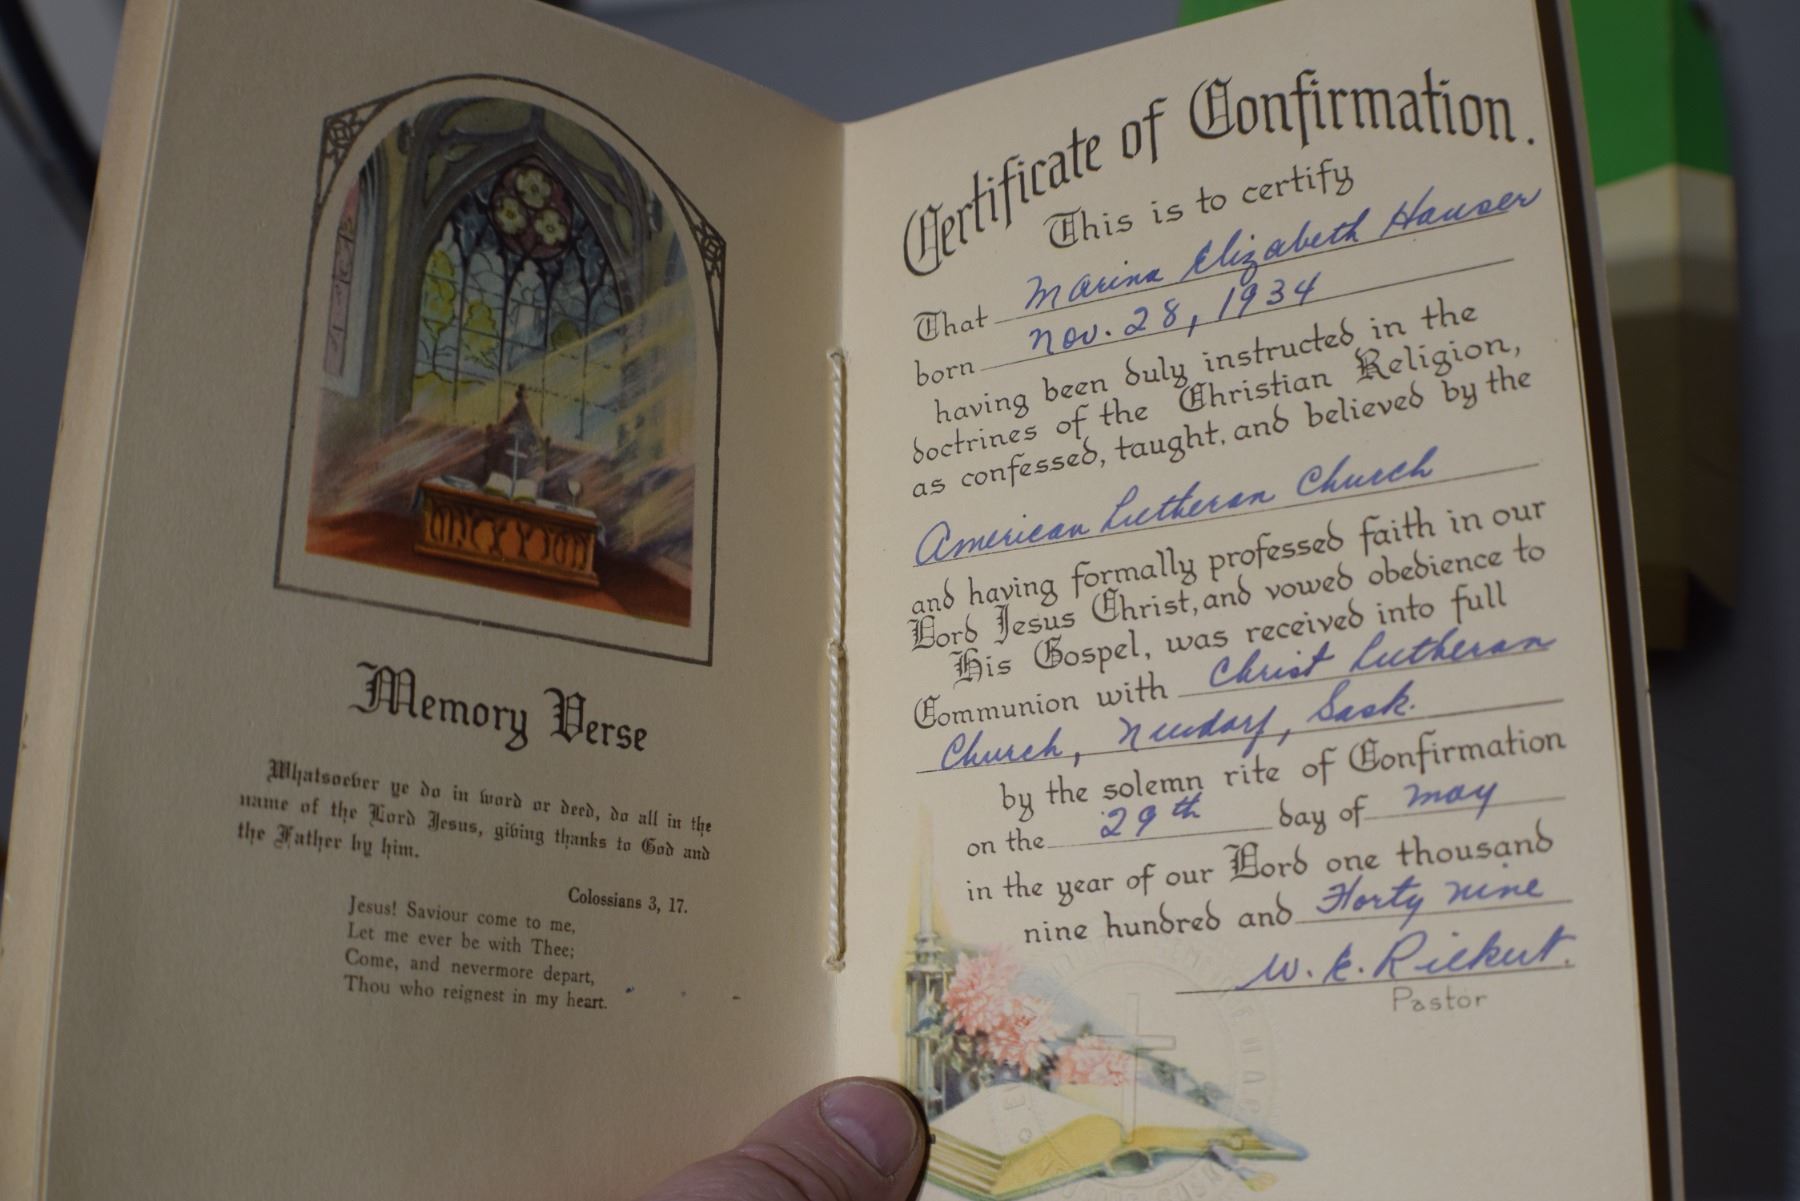 Memory Verse
Whatsoever ye do in word or deed, do all in the
name of the Lord Jesus, giving thanks to God and
the Father by him.
Colossians 3, 17.
Jesus! Saviour come to me,
Let me ever be with Thee;
Come, and nevermore depart,
Thou who reignest in my heart.
Certificate of Confirmation.
This is to certify
That Marina Elizabeth Hauser
born Nov. 28, 1934
having been duly instructed in the
doctrines of the Christian Religion,
as confessed, taught, and believed by the
American Lutheran Church
and having formally professed faith in our
Lord Jesus Christ, and vowed obedience to
His Gospel, was received into full
Communion with Christ Lutheran
Church, Neudorf, Sask.
by the solemn rite of Confirmation
on the 29th day of May
in the year of our Lord one thousand
nine hundred and Forty nine
W. E. Riekert.
Pastor